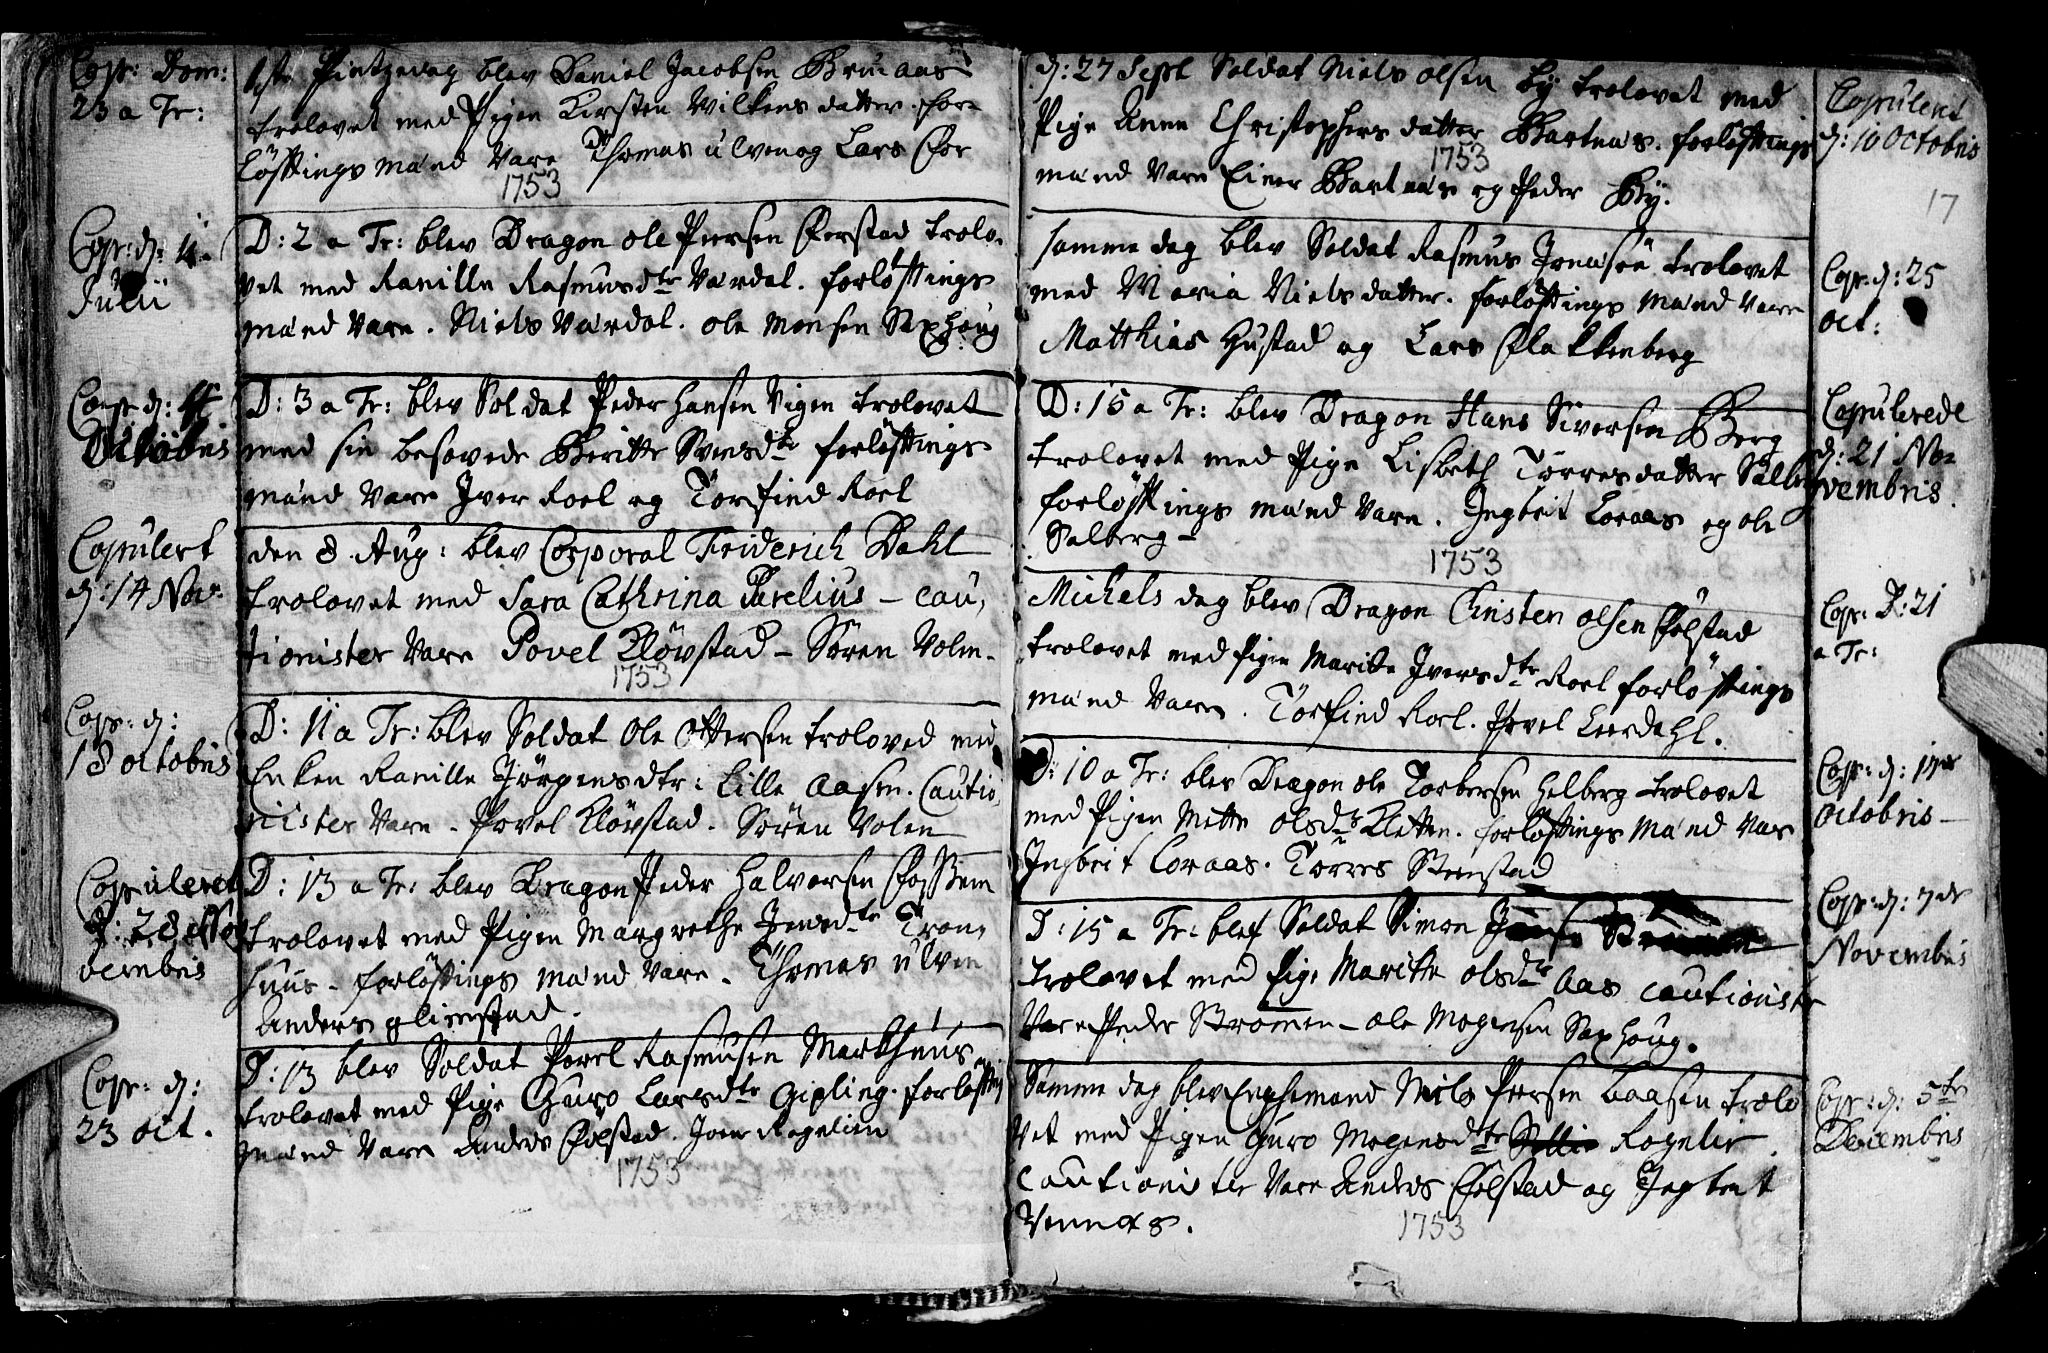 Cop: Dom:
23 a Tr:
1ste Pintzedag blev Daniel Jacobsen Bruaas
trolovet med Pigen Kirsten Wilkens datter. for=
löftings mænd vare Thomas Ulven og Lars For
1753
Cop: d: 11.
Julii
D: 2 a Tr: blev Dragon Ole Peersen Ferstad trolo-
vet med Ranille Rasmusdtr Værdal. forlöftings
mænd vare. Niels Værdal. Ole Monsen Saxhoug
Cop d: 4
Octobris
D: 3 a Tr: blev Soldat Peder Hansen Vigen trolovet
med sin besovede Beritte Svensdtr forlöftings
mænd vare Iver Roel og Torfind Roel
Copulert
d: 14 Nov:
den 8 Aug: blev Corporal Friderich Dahl
trolovet med Sara Cathrina Parelius - Cau,
tionister vare Povel Klövstad - Sören Volen.
1753
Cop: d:
18 octobris
D: 11 a Tr: blev Soldat Ole Ottersen troloved med
Enken Ranille Jörgensdtr: Lille Aasen. Cautio,
nister vare. Povel Klövstad. Sören Volen
Copuleret
d: 28 No,
vembris
D: 13 a Tr: blev Dragon Peder Halvorsen Fossem
trolovet med Pigen Margrethe Jensdtr Tron,
huus - forlöftings mænd vare. Thomas Ulven
Anders Glimstad.
Cop: d:
23 oct.
D: 13 blev Soldat Povel Rasmusen Markhuus
trolovet med Pige Guro Larsdtr Gipling. forlöfting
mænd vare Anders Fölstad. Joen Rogelien
1753
d: 27 Sept Soldat Niels Olsen By trolovet med
Pige Anne Christophers datter Bartnæs. forlöftings
1753
mænd vare Einer Bartnæs og Peder By.
Copulert
d: 10 Octobris
17
samme dag blev Soldat Rasmus Jonasen trolovet
med Maria Niels datter. forlöftings mænd vare
Matthias Hustad og Lars Flakkenberg
Cop: d: 25
oct:
D: 15 a Tr: blev Dragon Hans Siversen Berg
trolovet med Pige Lisbeth Torresdatter Salberg
forlöftings mænd vare. Ingbrit Loraas og Ole
Salberg -
1753
Copulerede
d: 21 No=
vembris.
Michels dag blev Dragon Christen Olsen Fölstad
trolovet med Pigen Maritte Iversdtr Roel forlöftings
mænd vare. Torfind Roel. Povel Leerdahl.
Cop: D: 21
a Tr:
D: 10 a Tr: blev Dragon Ole Torbersen Helberg trolovet
med Pigen Mette Olsdtr Kletten. forlöftings mænd var
Ingbrit Loraas. Torres Steenstad
Cop: d: 17de
octobris -
D: 15 a Tr: blef Soldat Simon
trolovet med Pige Maritte Olsdtr Aas cautionistr
Vare Peder Strömen - Ole Mogensen Saxhoug.
Cop: d: 7de
Novembris
Samme dag blev Enchemand Niels Peersen Laasen trolo
vet med Pigen Guro Mogensdtr Rogelie.
Cautionister vare Anders Fölstad og Ingbrit
Vennes.
1753
Cop: d: 5te
Decembris